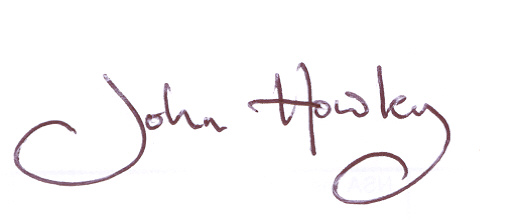 John Howley